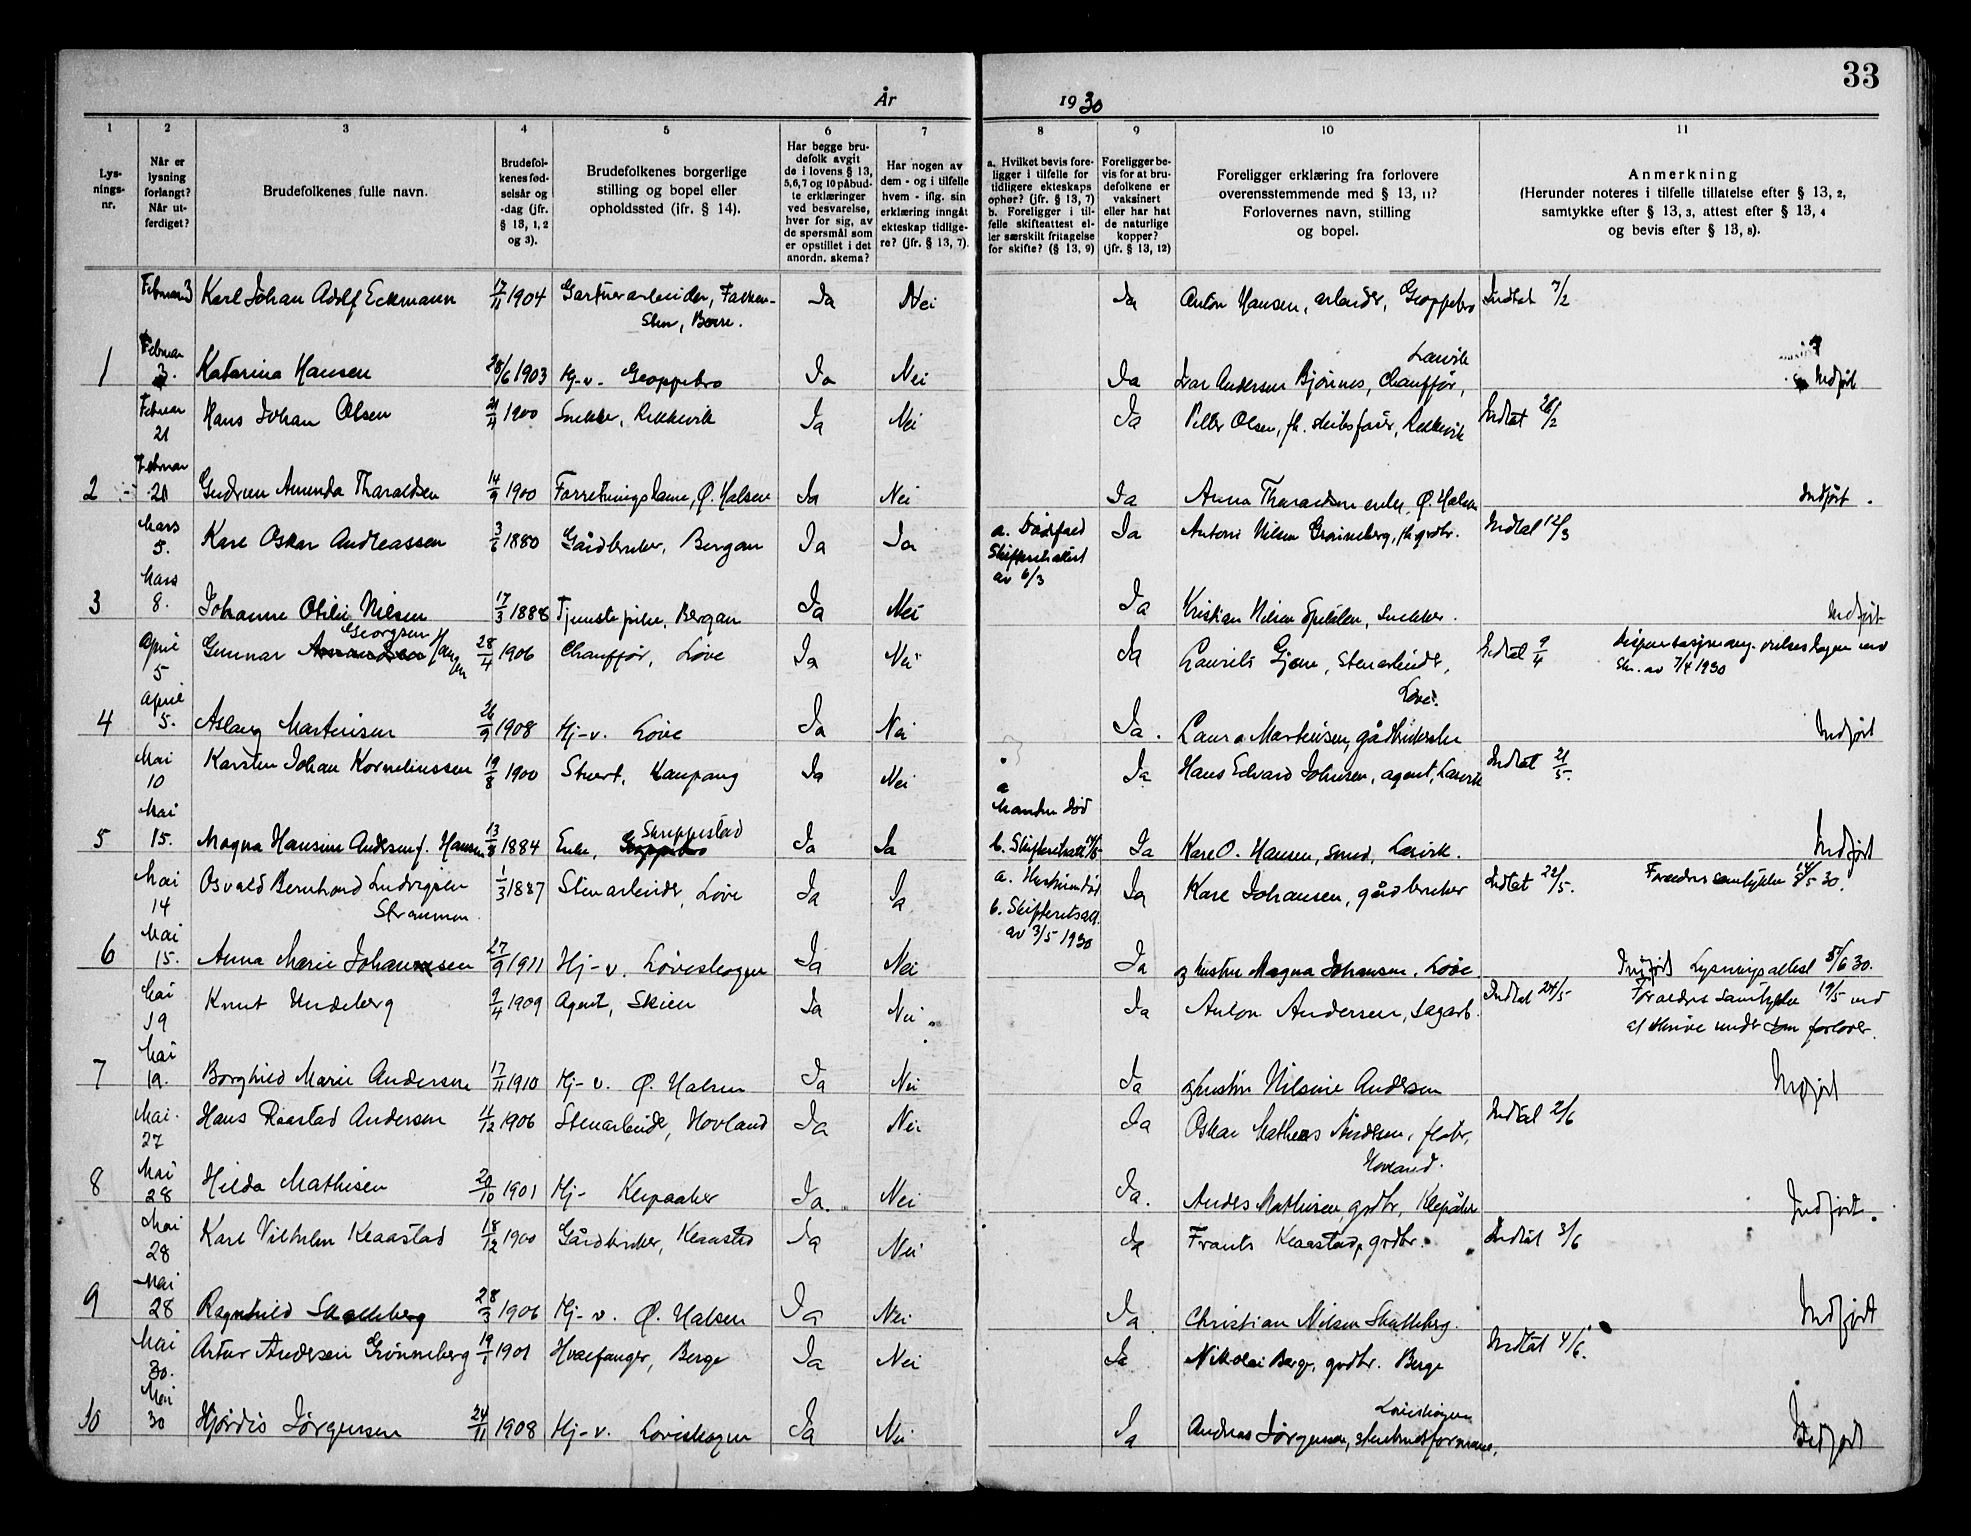 33
År 1930
1 2 3 4 5 6 7 8 9 10 11
Lys-
nings-
nr.
Når er
lysning
forlangt?
Når ut-
ferdiget?
Brudefolkenes fulle navn.
Brudefol-
kenes fød-
selsår og
-dag (jfr.
§ 13, 1, 2
og 3).
Brudefolkenes borgerlige
stilling og bopel eller
opholdssted (jfr. § 14).
Har begge bru-
defolk avgit
de i lovens § 13,
5,6,7 og 10 påbud-
te erklæringer
ved besvarelse,
hver for sig, av
de spørsmål som
er opstillet i det
anordn. skema?
Har nogen av
dem - og i tilfelle
hvem - iflg. sin
erklæring inngåt
ekteskap tidlige-
re? (jfr. § 13, 7).
a. Hvilket bevis fore-
ligger i tilfelle for
tidligere ekteskaps
ophør? (jfr. § 13, 7)
b. Foreligger i til-
felle skifteattest el-
ler særskilt fritagelse
for skifte? (§ 13, 9)
Foreligger be-
vis for at bru-
defolkene er
vaksinert
eller har hat
de naturlige
kopper?
(jfr. § 13, 12)
Foreligger erklæring fra forlovere
overensstemmende med § 13, 11?
Forlovernes navn, stilling
og bopel.
Anmerkning
(Herunder noteres i tilfelle tillatelse efter § 13, 2,
samtykke efter § 13, 3, attest efter § 13, 4
og bevis efter § 13, 8).
Februar 3 Karl Johan Adolf Eckmann 17/11 1904 Gartnerarbeider, Falken-
sten, Borre. Ja Nei Ja Anton Hansen, arbeider, Gloppebro Indtat 7/2
1 Februar 3. Katarina Hansen 28/6 1903 Hj-v. Gloppebro Ja Nei Ja Ivar Andersen Bjønnes, Chauffør, Larvik Indført
Februar 21 Hans Johan Olsen 21/4 1900 Snekker, Rekkevik Ja Nei Ja Petter Olsen, fh. skibsfører, Rekkevik Indtat 28/2
2 Februar 21 Gudrun Amanda Tharaldsen 14/9 1900 Forretningsdame, Ø. Halsen Ja Nei Ja Anna Tharaldsen enke, Ø. Halsen Indført.
Mars 5. Karl Oskar Andreassen 3/6 1880 Gårdbruker, Bergan Ja Ja a. Dødsfald
Skifterettsattest
av 6/3 Ja Antoni Nilsen Grønneberg, fh. grdbr. Indtat 12/3
3 Mars 8. Johanne Otilie Nilsen 17/3 1888 Tjenestepike, Bergan Ja Nei Ja Kristian Nilsen, snekker. Indført
April 5 Gunnar Georgsen Hansen 28/4 1906 Chauffør, Løve Ja Nei Ja Laurits Gjone, stenarbeider, Løve. Indtat 9/4
skr. av 7/4 1930
4 April 5. Aslaug Martinsen 26/9 1908 Hj-v. Løve Ja Nei Ja. Laura Martinsen, gårdbrukerske Indført
Mai 10 Karsten Johan Korneliussen 19/8 1900 Stuert, Kaupang Ja Nei Ja Hans Edvard Johnsen, agent, Larvik Indtat 21/5.
5 Mai 15. Magna Hansine Andersen f. Hansen 13/8 1884 Enke, Skreppestad Gloppebro Ja Ja a
Manden død
b. Skifterettsatt. Ja Karl O. Hansen, smed, Larvik. Indført
Mai 14 Osvald Bernhard Ludvigsen
Strannum 1/3 1887 Stenarbeider, Løve Ja Ja a. Hustruen død
b. Skifteretsatt.
av 3/5 1930 Ja Karl Johansen, gårdbruker Indtat 22/5. Foreldres samtykke 14/5 30.
6 Mai 15. Anna Marie Johannesen 27/9 1911 Hj-v. Løveskogen Ja Nei Ja og hustru Magna Johansen, Løve Indført Lysningsattest 5/6 30.
Mai 19 Knut Undeberg 9/4 1909 Agent, Skien Ja Nei Ja Anton Andersen, sagarb. Indtat 24/5 Foreldres samtykke 19/5 ved
at skrive under som forlover.
7 Mai 19. Borghild Marie Andersen 17/11 1910 Hj-v. Ø. Halsen Ja Nei Ja og hustru Nilsine Andersen Indført
Mai 27 Hans Raastad Andersen 4/12 1906 Stenarbeider, Hovland Ja Nei Ja Oskar Matheus Andersen, Hovland. Indtat 2/6
8 Mai 28 Hilda Mathisen 20/10 1901 Hj- Klepaaker Ja. Nei Ja. Anders Mathisen, grdbr, Klepåker Indført.
Mai 28 Karl Vilhelm Klaastad 18/12 1900 Gårdbruker, Klaastad Ja Nei Ja Frants Klaastad, grdbr. Indtat 3/6
9 Mai 28 Ragnhild Skalleberg 28/3 1906 Hj-v. Ø. Halsen Ja Nei Ja Christian Nilsen Skalleberg. Indført
Mai 30. Artur Andersen Grønneberg 19/1 1901 Hvalfanger, Berge Ja Nei Ja Nikolai Berge, grdbr. Berge Indtat 4/6.
10 Mai 30 Hjørdis Jørgensen 24/11 1908 Hj-v. Løveskogen Ja Nei Ja Andreas Jørgensen, stenbrudsformand, Løveskogen Indført